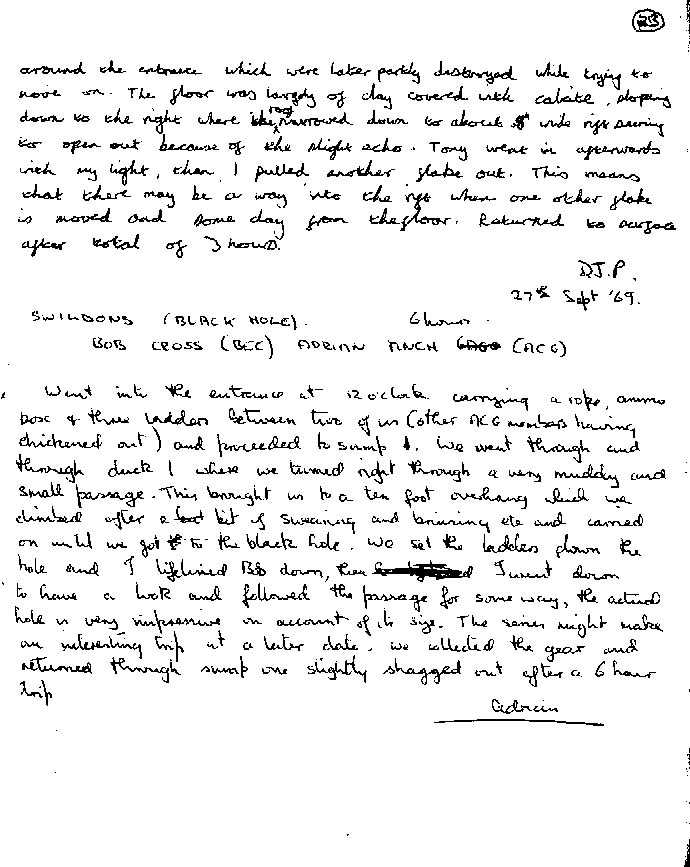 25
around the entrance which were later partly destroyed while trying to
move on. The floor was largely of clay covered with calcite, sloping
down to the right where the roof narrowed down to about 8" wide rift seeming
to open out because of the slight echo. Tony went in afterwards
with my light, then I pulled another flake out. This means
that there may be a way into the rift when one other flake
is moved and some clay from the floor. Returned to surface
after total of 3 hours.
D.J.P.
27th Sept '69.
SWILDONS (BLACK HOLE). 6 hours.
BOB CROSS (BEC) ADRIAN FINCH (ACG)
Went into the entrance at 12 o'clock carrying a rope, ammo
box & three ladders between two of us (other ACG members having
chickened out) and proceeded to sump 1. We went through and
through duck 1 where we turned right through a very muddy and
small passage. This brought us to a ten foot overhang which we
climbed after a bit of swearing and bruising etc and carried
on until we got to the black hole. We set the ladders down the
hole and I lifelined Bob down, then I went down
to have a look and followed the passage for some way, the actual
hole is very impressive on account of its size. The series might make
an interesting trip at a later date. We collected the gear and
returned through sump one slightly shagged out after a 6 hour
trip
Adrian